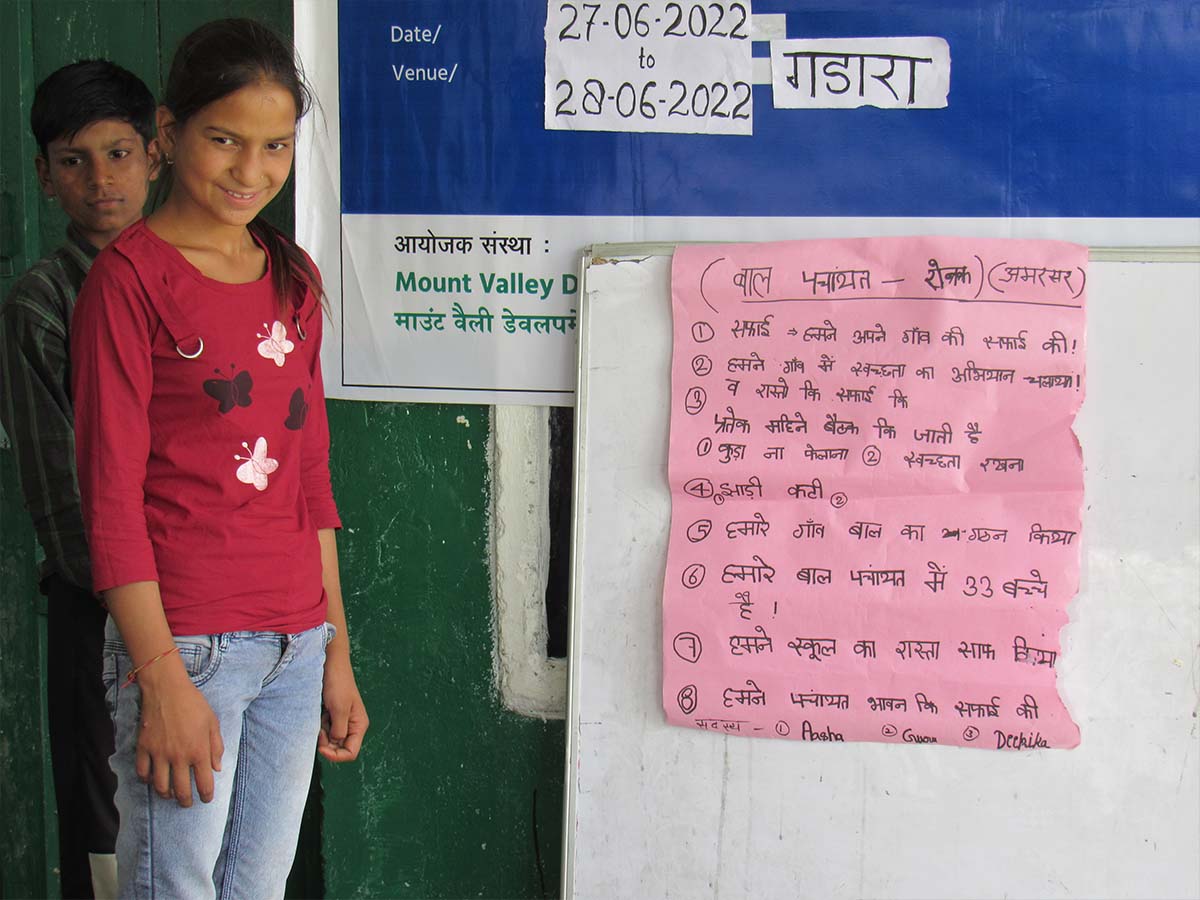 Date/
Venue/
27-06-2022
to
28-06-2022
गडारा
आयोजक संस्था :
Mount Valley D
माउंट वैली डेवलपमे
(बाल पचांयत - रोनक) (अमरसर)
① सफाई ⇒ हमने अपने गाँव की सफाई की!
② हमने गाँव में स्वच्छता का अभियान चलाया!
③ व रास्तो कि सफाई कि
प्रतेक महिने बैठक कि जाती है
① कुड़ा ना फेलाना ② स्वच्छता रखना
④ ① झाड़ी कटी ②
⑤ हमारे गाँव बाल का गठन किया
⑥ हमारे बाल पचांयत में 33 बच्चे
है !
⑦ हमने स्कूल का रास्ता साफ किया
⑧ हमने पचांयत भावन कि सफाई की
सदस्य - ① Aasha ② ③ Deepika